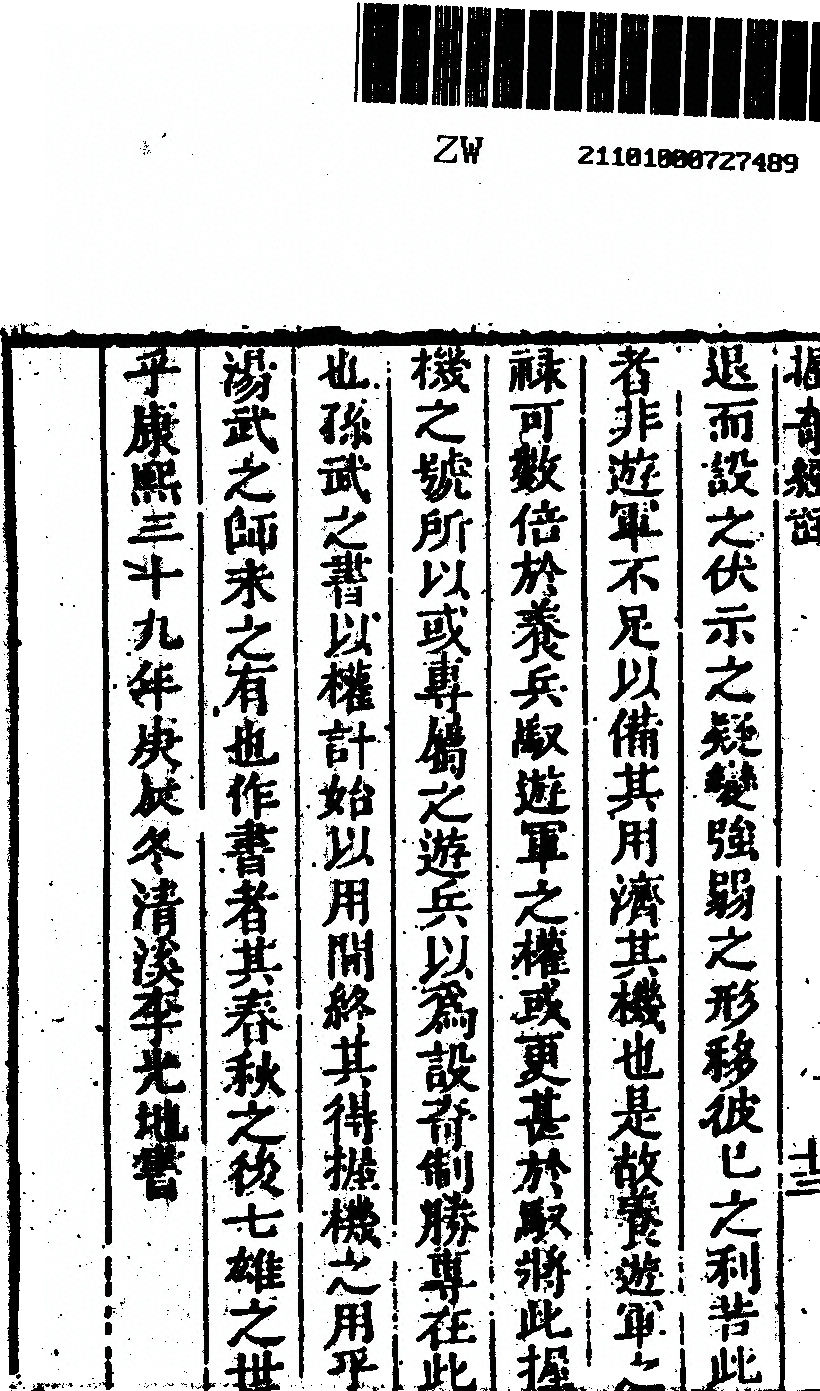 ZW 21101000727489
握奇經註
十三
退而設之伏示之疑變強弱之形移彼已之利苦此
者非遊軍不足以備其用濟其機也是故養遊軍之
祿可數倍於養兵馭遊軍之權或更甚於馭將此握
機之號所以或專屬之遊兵以爲設奇制勝專在此
也孫武之書以權計始以用間終其得握機之用乎
湯武之師未之有也作書者其春秋之後七雄之世
乎康熙三十九年庚辰冬清溪李光地書